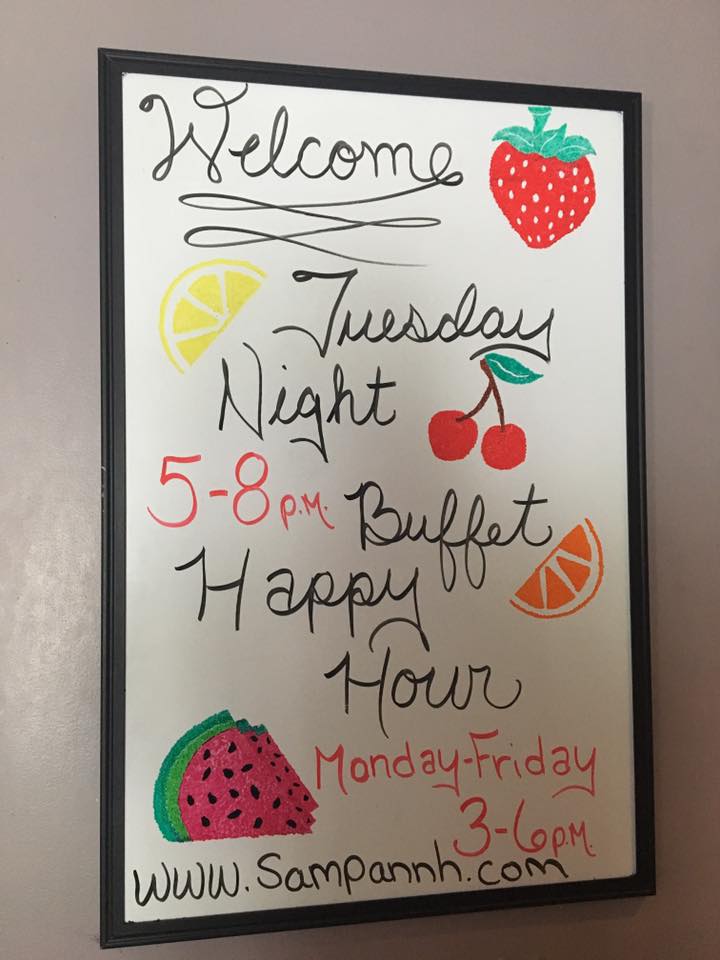 Welcome
Tuesday
Night
5-8 P.M. Buffet
Happy
Hour
Monday-Friday
3-6 P.M.
www.Sampannh.com